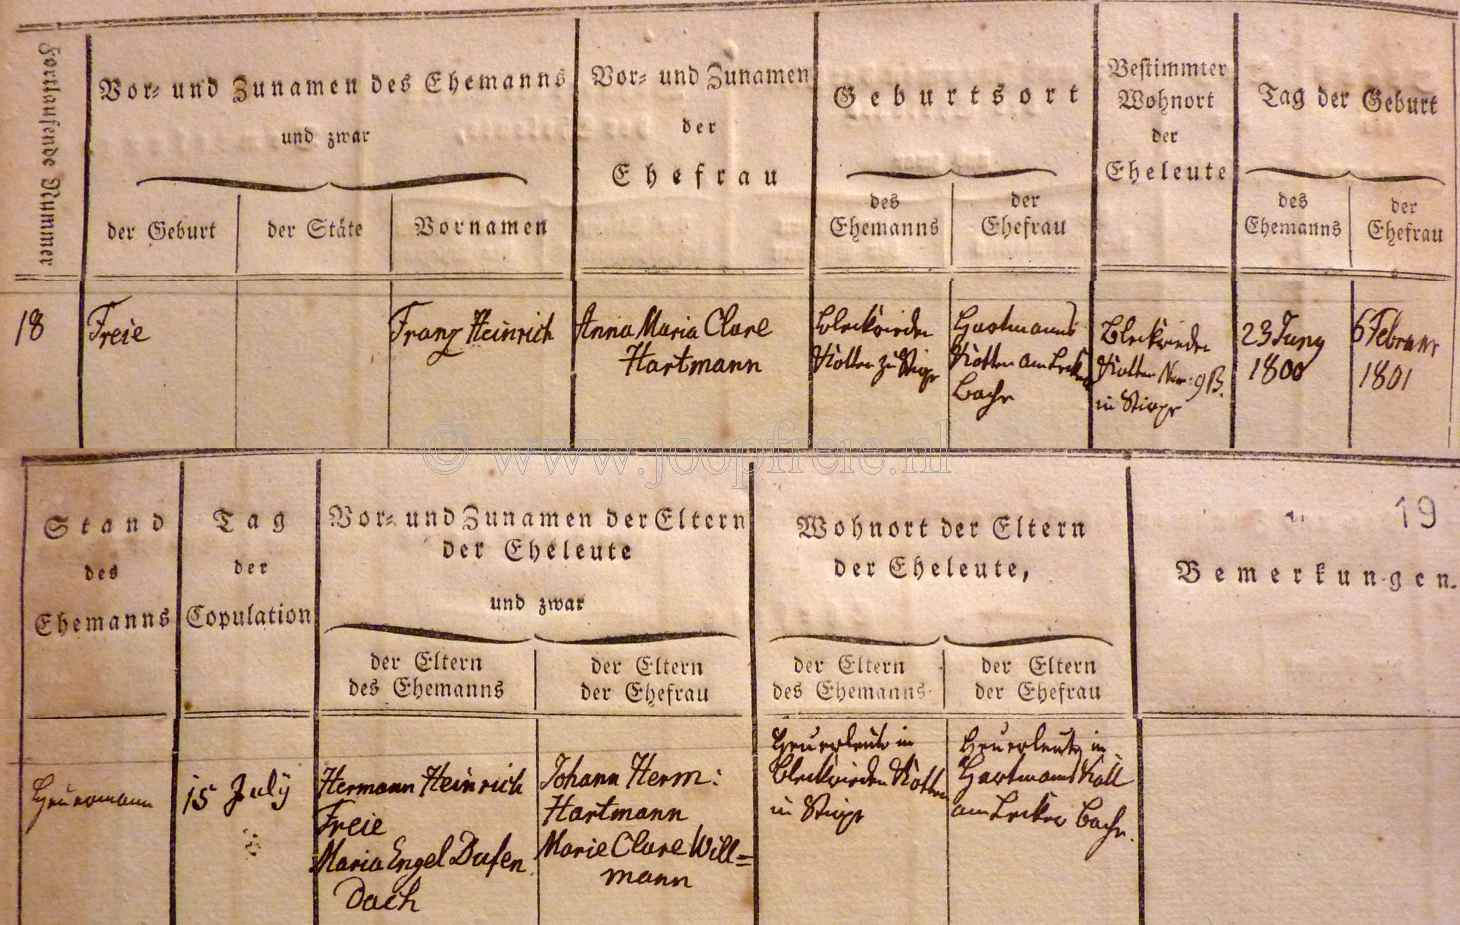 Fortlaufende Nummer
Vor- und Zunamen des Ehemanns
und zwar
der Geburt
der Stäte
Vornamen
Vor- und Zunamen
der
Ehefrau
Geburtsort
des
Ehemanns
der
Ehefrau
Bestimmter
Wohnort
der
Eheleute
Tag der Geburt
des
Ehemanns
der
Ehefrau
18
Freie
Franz Heinrich
Anna Maria Clare
Hartmann
Kotten zu
Hartmanns
Kotten am
Bache
Kotten Nro: 9 B.
in
23 Juny
1800
6 Februar
1801
© www.joopfreie.nl
Stand
des
Ehemanns
Tag
der
Copulation
Vor- und Zunamen der Eltern
der Eheleute
und zwar
der Eltern
des Ehemanns
der Eltern
der Ehefrau
Wohnort der Eltern
der Eheleute,
der Eltern
des Ehemanns
der Eltern
der Ehefrau
19
Bemerkungen.
Heuermann
15 July
Hermann Heinrich
Freie
Maria Engel Dufen
Dach
Johann Herm:
Hartmann
Marie Clare Will=
mann
Heuerleute in
Kotten
in
Heuerleute in
Hartmans Kott
am Bache.